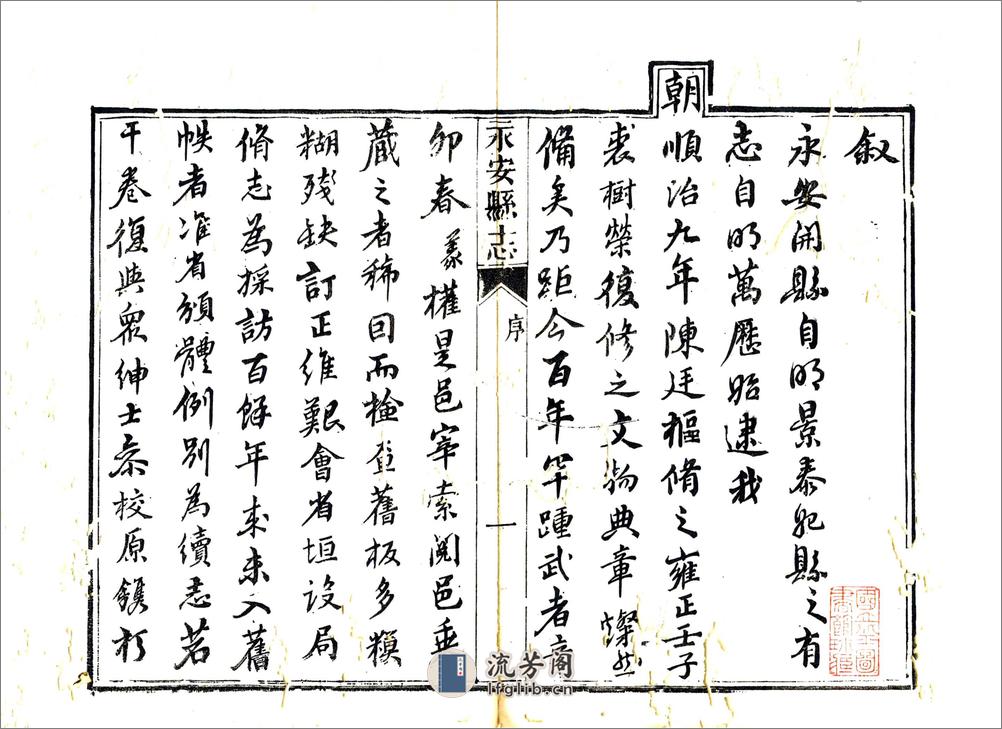 叙
永安開縣自明景泰始縣之有
志自明萬歷始逮我
朝
順治九年陳廷樞脩之雍正壬子
裘樹榮復修之文物典章燦然
備矣乃距今百年罕踵武者辛
永安縣志 序 一
卯春義權是邑宰索閱邑乘
藏之者稀因而檢查舊板多糢
糊殘缺訂正維艱會省垣設局
脩志為採訪百餘年來未入舊
帙者准省頒體例別為續志若
干卷復與眾紳士叅校原鐫打
流芳阁
lfglib.cn